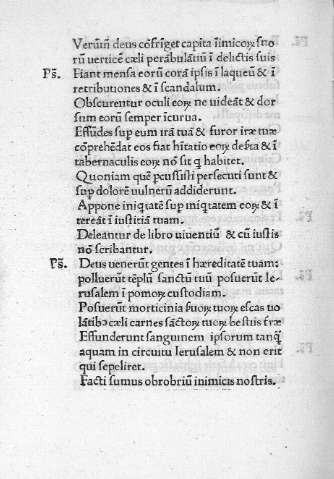 Verūm̄ deus cōfriget capita īimicoꝝ suo
rū verticē cæli perābulātiū ī delictis suis
Ps̄. Fiant mensa eorū corā ipsis ī laqueū & ī
retributiones & ī scandalum.
Obscurentur oculi eoꝝ ne uideāt & dor
sum eorū semper īcurua.
Effūdes sup eum irā tuā & furor iræ tuæ
cōprehēdat eos fiat hītatio eoꝝ deserta & ī
tabernaculis eoꝝ nō sit q̄ habitet.
Quoniam quē pcussisti persecuti sunt &
sup̄ dolorē vulnerū addiderunt.
Appone iniq̄tatē sup iniquitatem eoꝝ & ī
tereāt ī iustitiā tuam.
Deleantur de libro uiuentiū & cū iustis
nō scribantur.
Ps̄. Deus uenerūt gentes ī hæreditatē tuam:
polluerūt tēplū sanctū tuū posuerūt Ie-
rusalem ī pomoꝝ custodiam.
Posuerūt morticinia suoꝝ tuoꝝ escas uo
lātibꝰ cæli carnes sāctoꝝ tuoꝝ bestiis t̄ræ
Effunderunt sanguinem ipsorum tanq̄
aquam in circuitu Ierusalem & non erit
qui sepeliret.
Facti sumus obrobriū inimicis nostris.